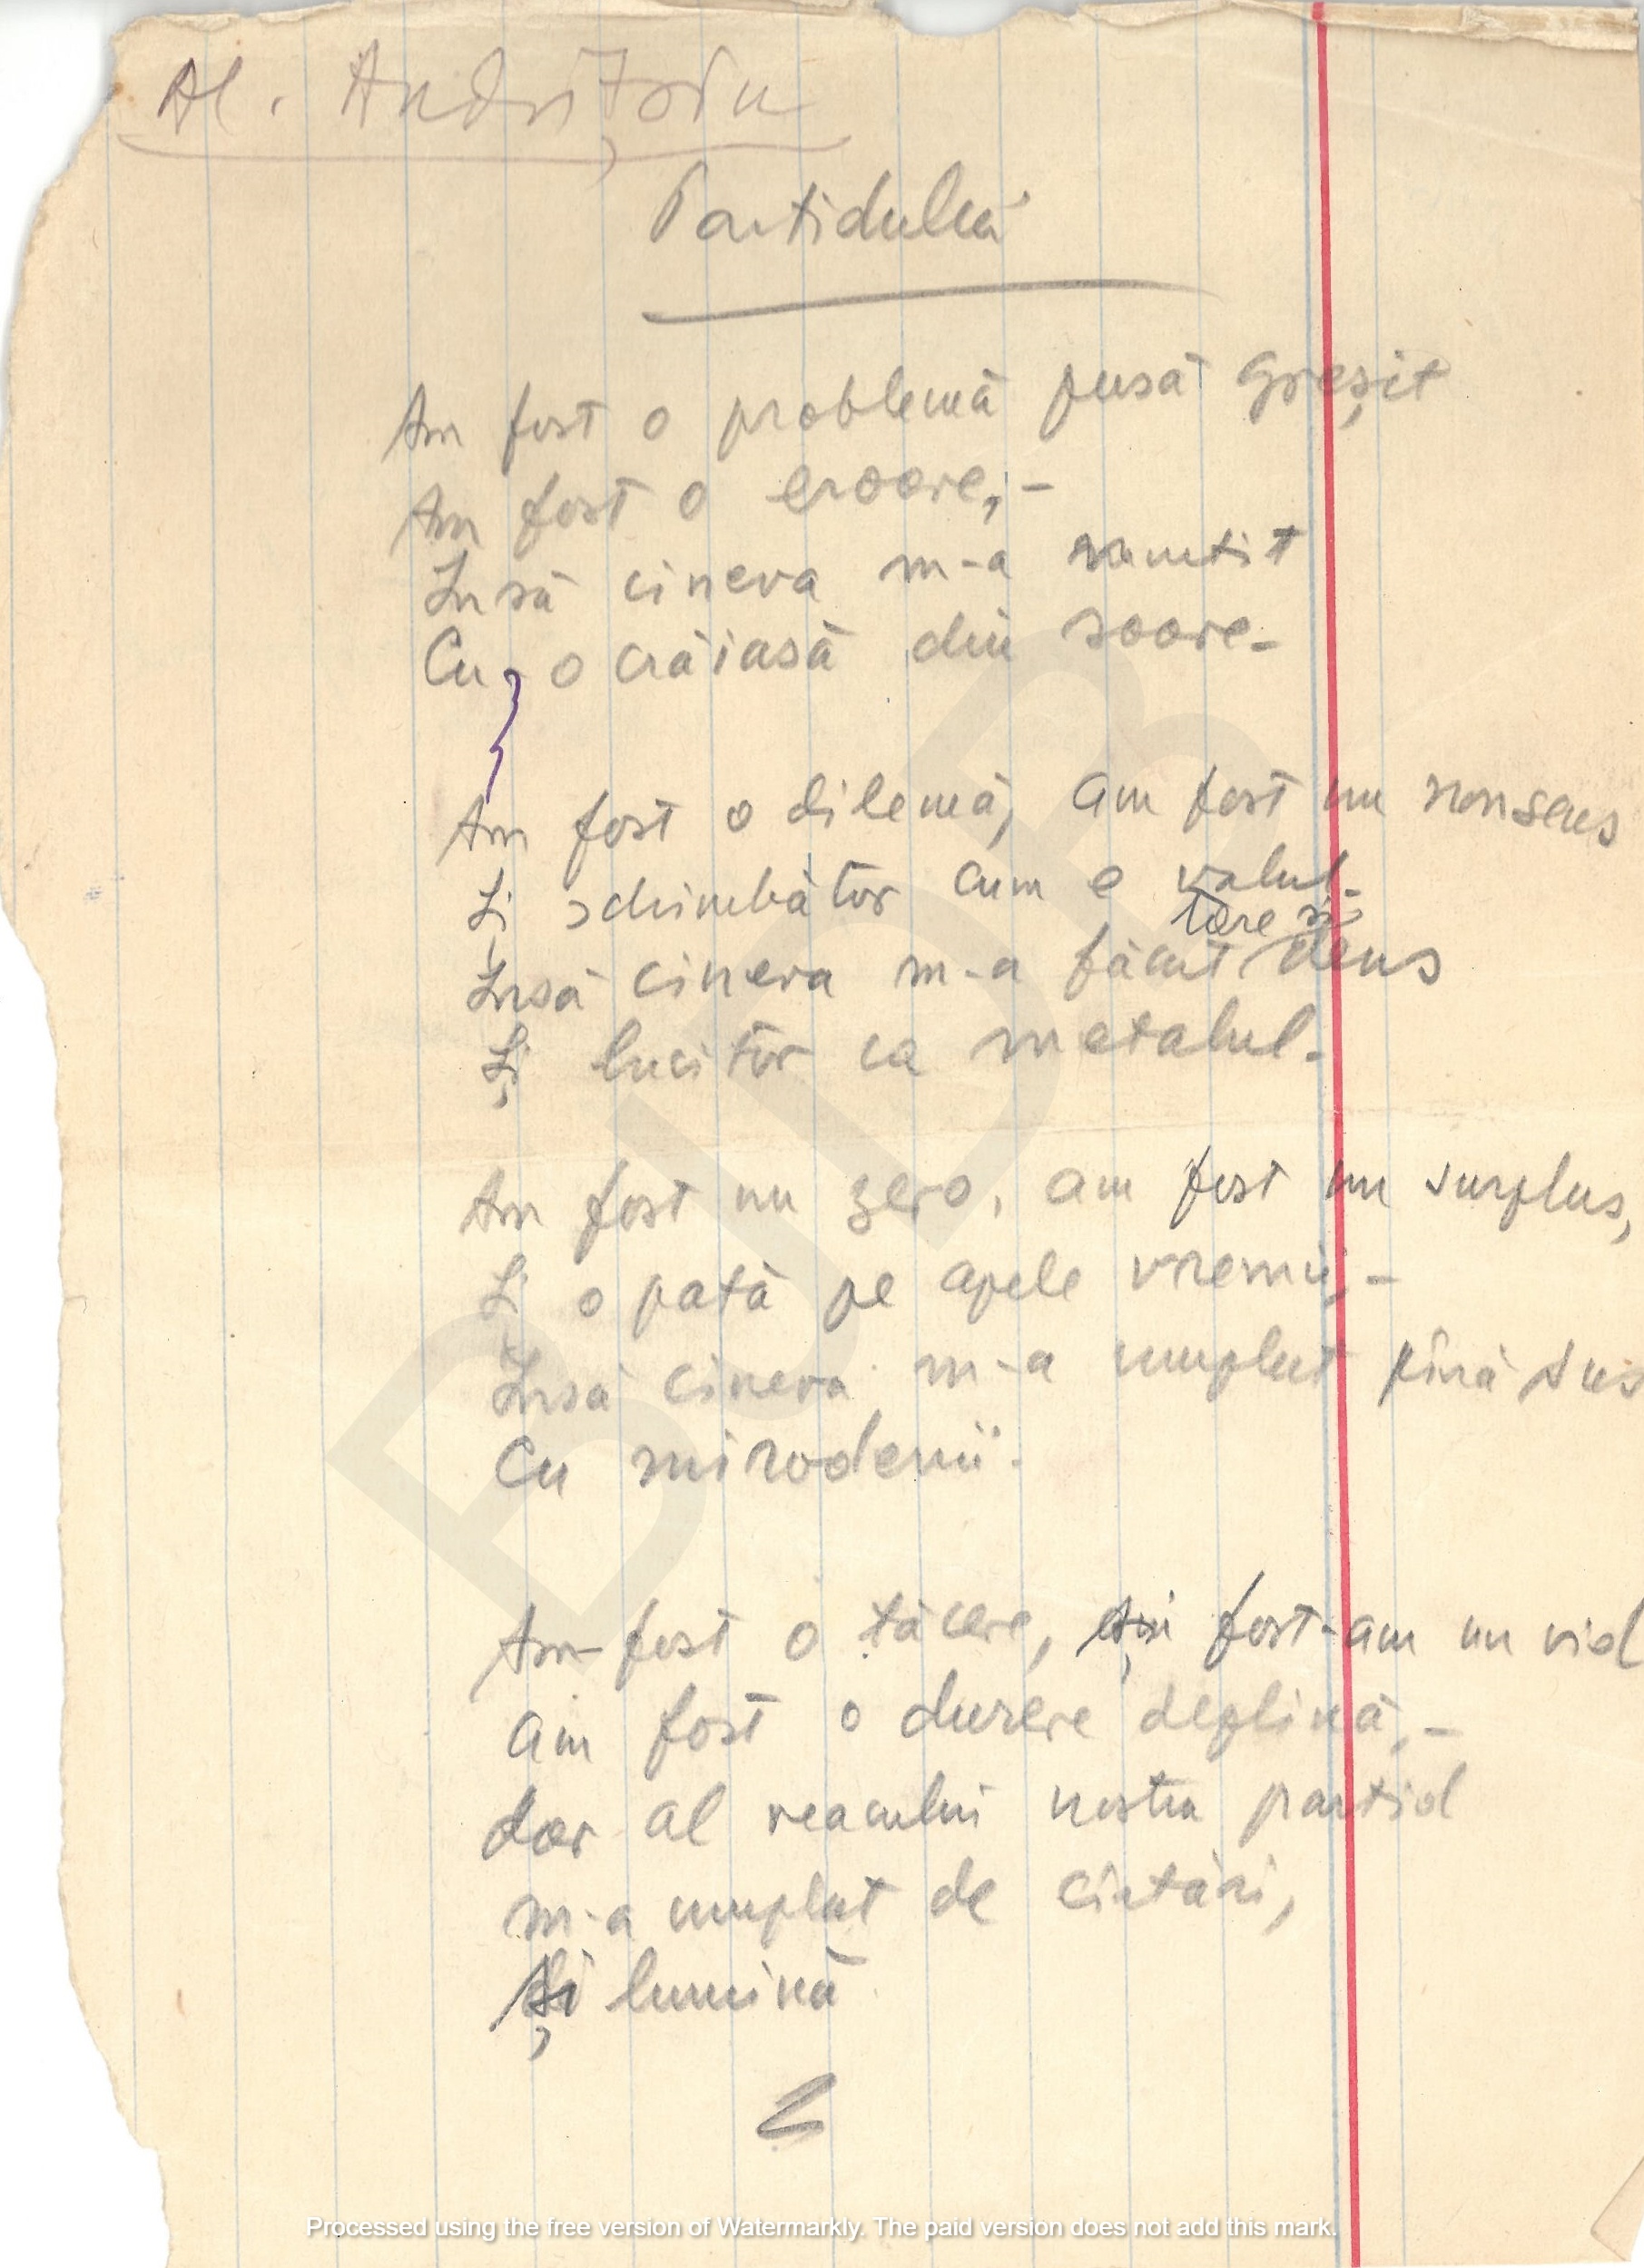 Al. Andrițoiu
Partidului
Am fost o problemă pusă greșit
Am fost o eroare, -
Însă cineva m-a
Cu o crăiasă din soare.
Am fost o dilemă, am fost un nonsens
Și schimbător cum e valul.
tare și
Însă cineva m-a făcut dens
Și lucitor ca metalul.
Am fost un zero, am fost un surplus,
Și o pată pe apele vremii, -
Însă cineva m-a umplut pînă sus
Cu mirodenii.
Am fost o tăcere, și fost-am un vid
am fost o durere deplină, -
dar al veacului nostru partid
m-a umplut de cîntări,
Și lumină
BJDB
Processed using the free version of Watermarkly. The paid version does not add this mark.